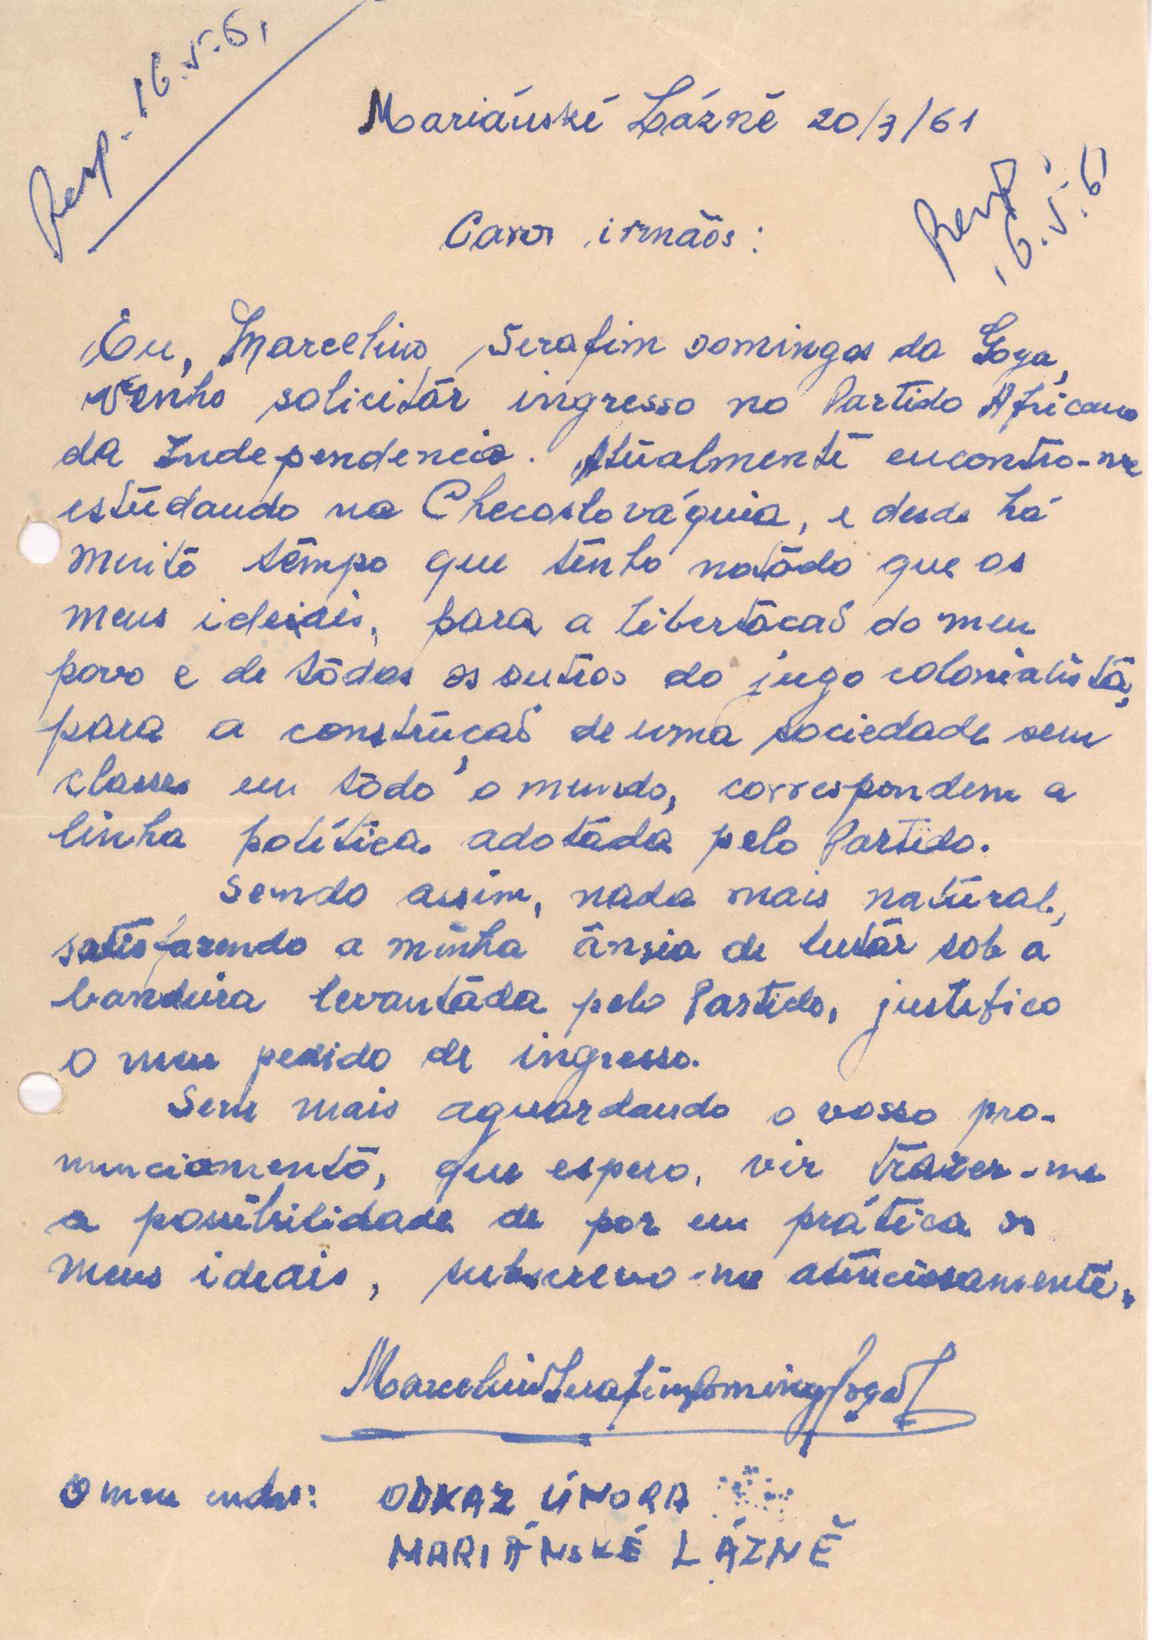 Resp. 16.V.61
Mariánské Lázně 20/3/61
Resp
16.V.61
Caros irmãos:
Eu, Marcelino Serafim Domingos da Goya,
venho solicitár ingresso no Partido Africano
da Independencia. Atualmente encontro-me
estudando na Checoslováquia, e desde há
muito tempo que tenho notado que os
meus ideiais, para a libertacaõ do meu
povo e de tôdos os outros do jugo colonialista,
para a construçaõ de uma sociedade sem
classes em tôdo o mundo, correspondem a
linha política adotada pelo Partido.
Sendo assim, nada mais natural,
satisfazendo a minha ânsia de lutar sob a
bandeira levantada pelo Partido, justifico
o meu pedido de ingresso.
Sem mais aguardando o vosso pro-
nunciamento, que espero, vir trazer-me
a possibilidade de por em prática os
meus ideais, subscrevo-me atenciosamente.
Marcelino Serafim Domingos
O meu ender:
ODKAZ ÚNORA
MARIÁNSKÉ LÁZNĚ